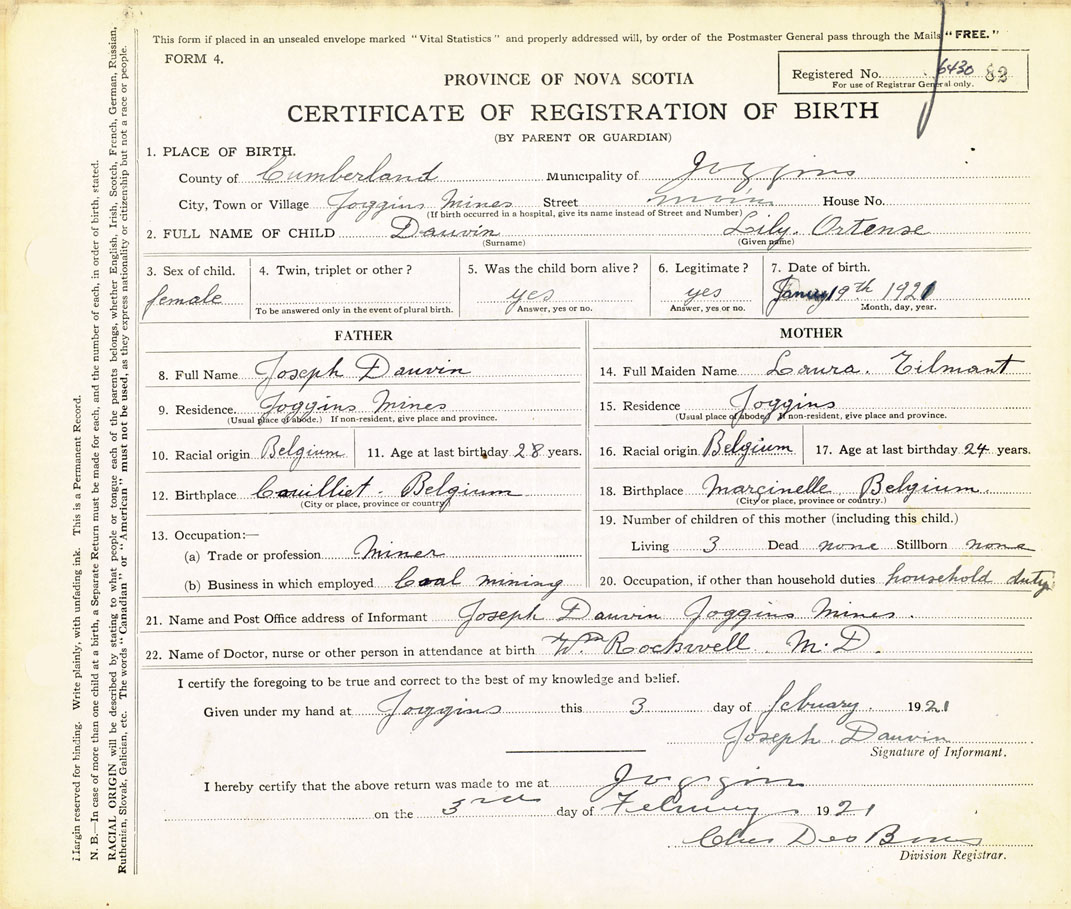 This form if placed in an unsealed envelope marked "Vital Statistics" and properly addressed will, by order of the Postmaster General pass through the Mails "FREE."
FORM 4.
Registered No. 6430 82
For use of Registrar General only.
PROVINCE OF NOVA SCOTIA
CERTIFICATE OF REGISTRATION OF BIRTH
(BY PARENT OR GUARDIAN)
1. PLACE OF BIRTH.
County of Cumberland Municipality of Joggins
City, Town or Village Joggins Mines Street Main House No.
(If birth occurred in a hospital, give its name instead of Street and Number)
2. FULL NAME OF CHILD Dauvin Lily. Ortense
(Surname) (Given name)
3. Sex of child. 4. Twin, triplet or other? 5. Was the child born alive? 6. Legitimate? 7. Date of birth.
female yes yes January 19th 1921
To be answered only in the event of plural birth. Answer, yes or no. Answer, yes or no. Month, day, year.
FATHER
8. Full Name Joseph Dauvin
9. Residence. Joggins Mines
(Usual place of abode.) If non-resident, give place and province.
10. Racial origin Belgium 11. Age at last birthday 28 years.
12. Birthplace Couilliet. Belgium
(City or place, province or country)
13. Occupation:—
(a) Trade or profession Miner
(b) Business in which employed Coal mining
MOTHER
14. Full Maiden Name Laura. Tilmant
15. Residence Joggins
(Usual place of abode.) If non-resident, give place and province.
16. Racial origin Belgium 17. Age at last birthday 24 years.
18. Birthplace Marcinelle Belgium.
(City or place, province or country.)
19. Number of children of this mother (including this child.)
Living 3 Dead none Stillborn none
20. Occupation, if other than household duties household duty
21. Name and Post Office address of Informant Joseph Dauvin Joggins Mines.
22. Name of Doctor, nurse or other person in attendance at birth Wm Rockwell M.D.
I certify the foregoing to be true and correct to the best of my knowledge and belief.
Given under my hand at Joggins this 3 day of february. 1921
Joseph Dauvin
Signature of Informant.
I hereby certify that the above return was made to me at Joggins
on the 3rd day of February 1921
Division Registrar.
Margin reserved for binding. Write plainly, with unfading ink. This is a Permanent Record.
N. B.—In case of more than one child at a birth, a Separate Return must be made for each, and the number of each, in order of birth, stated.
RACIAL ORIGIN will be described by stating to what people or tongue each of the parents belongs, whether English, Irish, Scotch, French, German, Russian,
Ruthenian, Slovak, Galician, etc. The words "Canadian" or "American" must not be used, as they express nationality or citizenship but not a race or people.